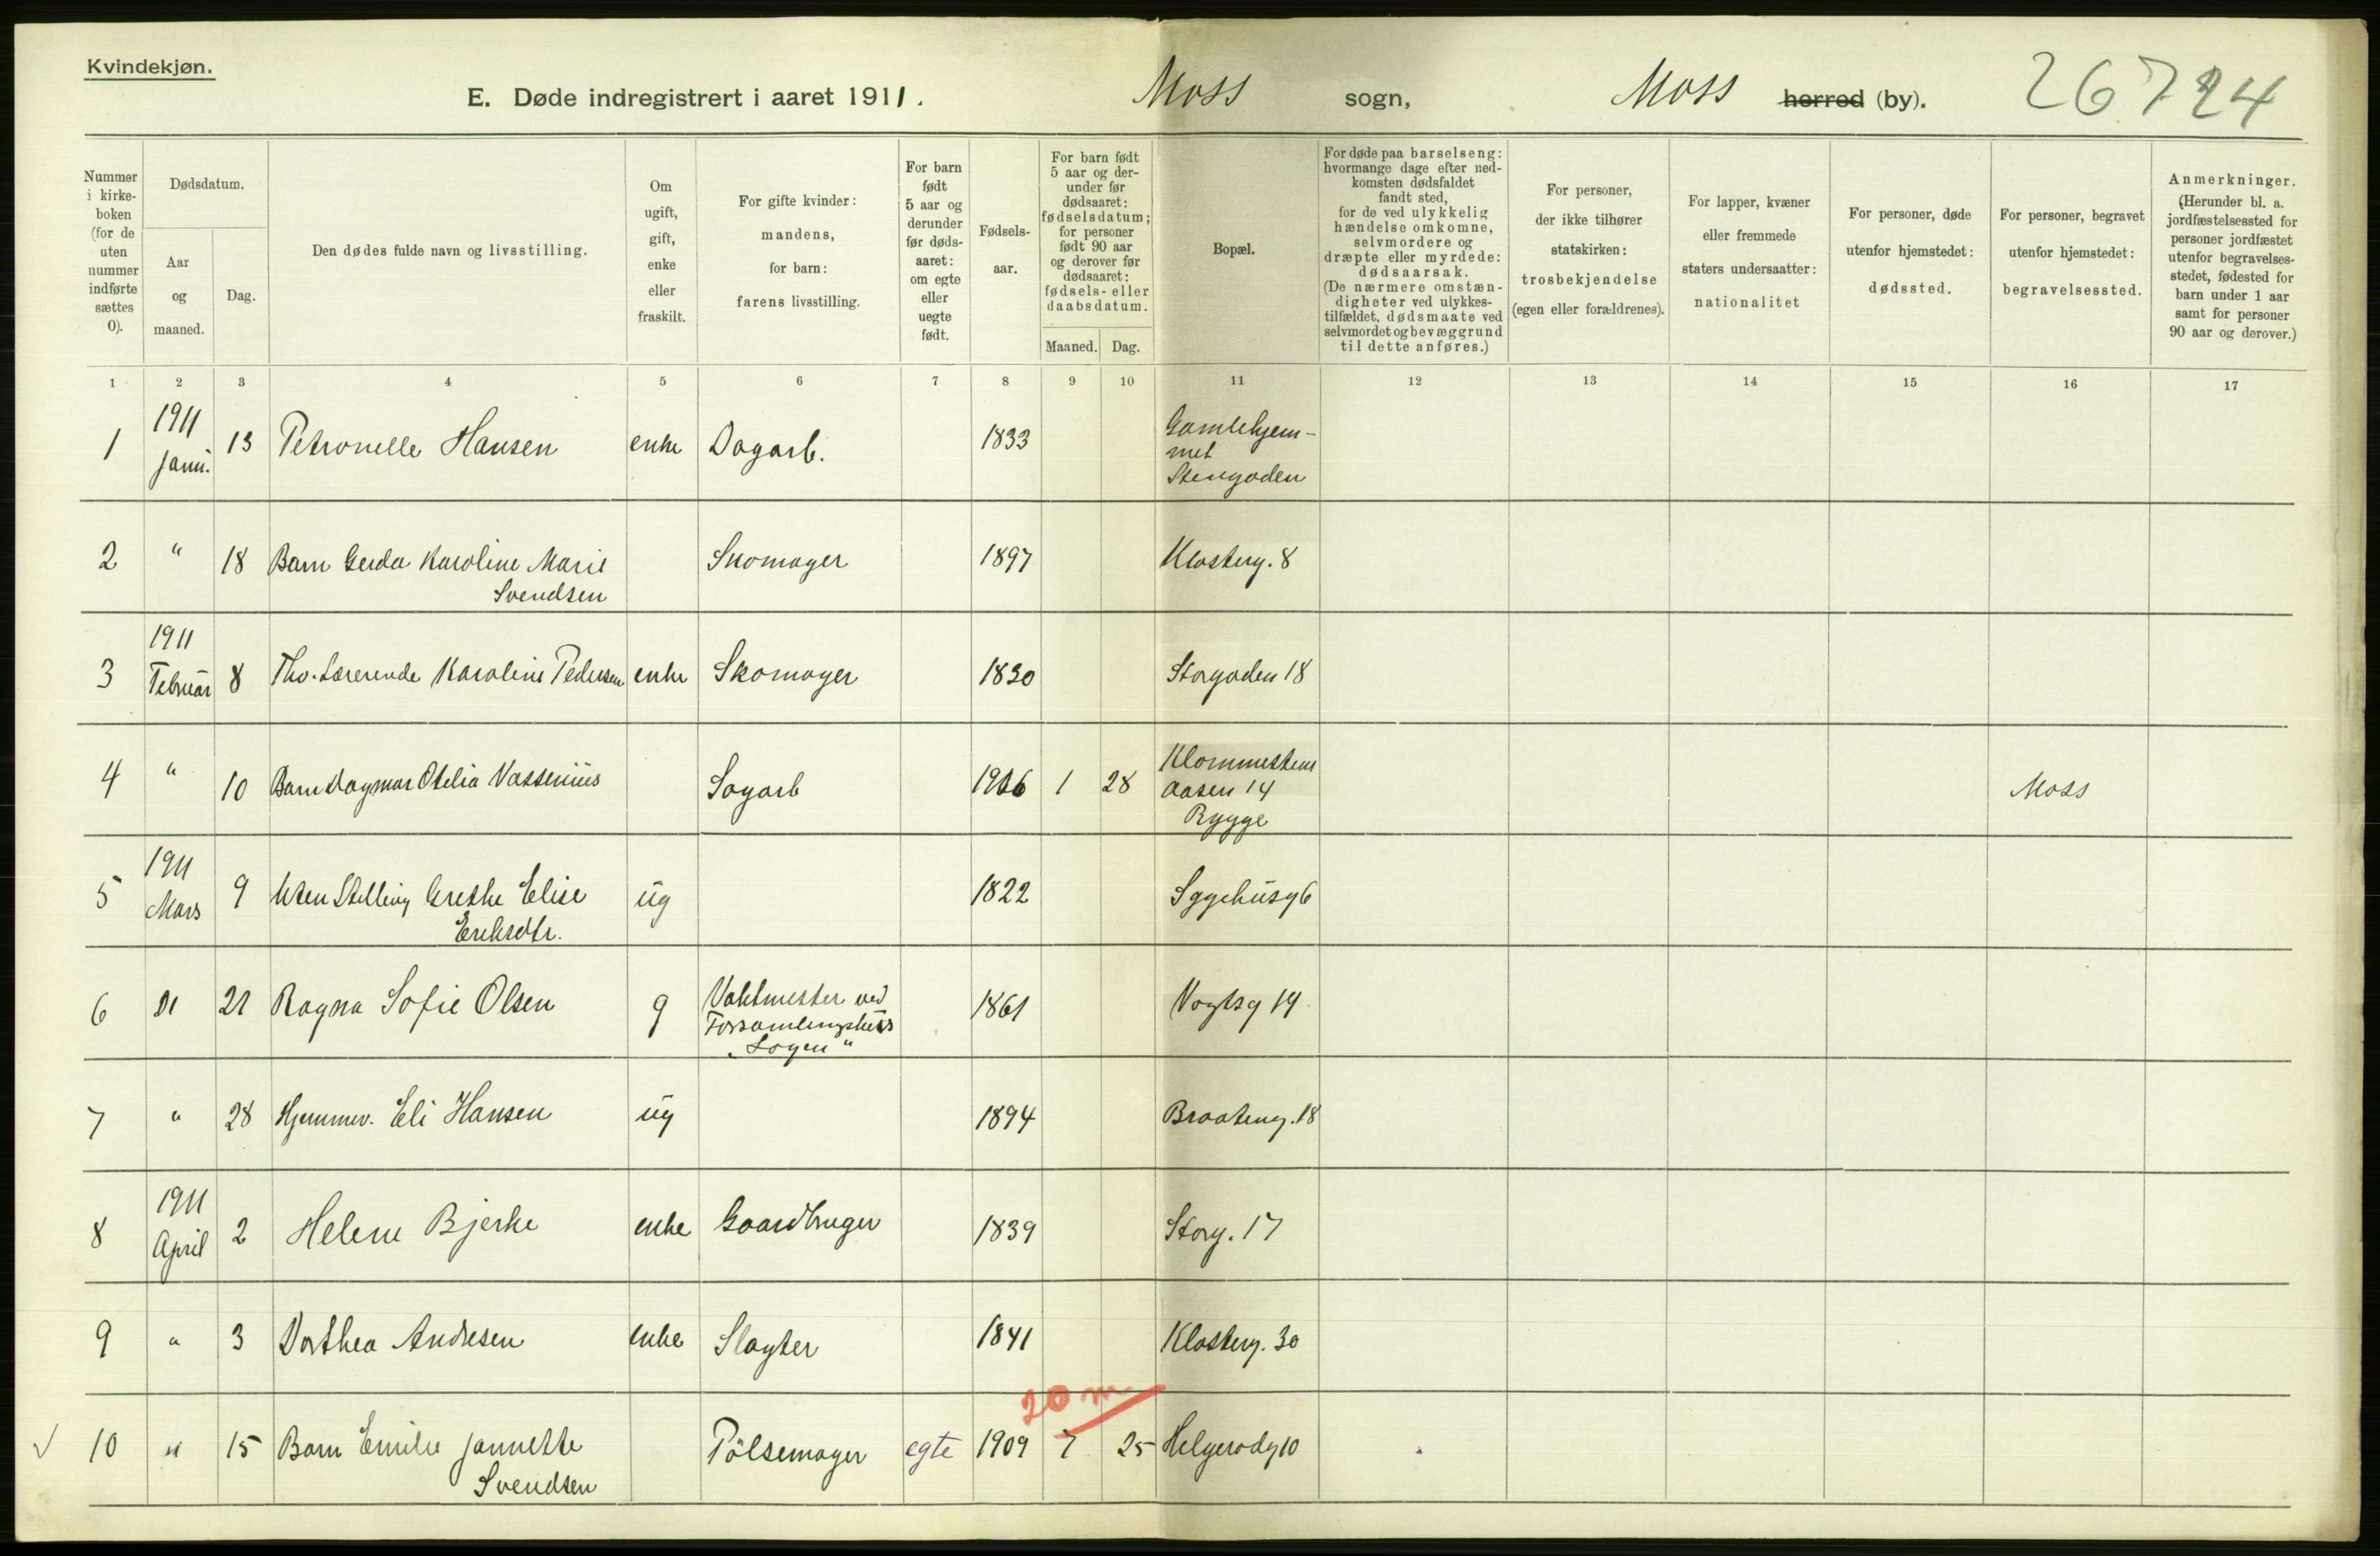 Kvindekjøn.
E. Døde indregistrert i aaret 1911. Moss sogn, Moss herred (by). 26724
Nummer i kirkeboken (for de uten nummer indførte sættes 0).
Dødsdatum.
Aar og maaned.
Dag.
Den dødes fulde navn og livsstilling.
Om ugift, gift, enke eller fraskilt.
For gifte kvinder: mandens, for barn: farens livsstilling.
For barn født 5 aar og derunder før dødsaaret: om egte eller uegte født.
Fødselsaar.
For barn født 5 aar og derunder før dødsaaret: fødselsdatum; for personer født 90 aar og derover før dødsaaret: fødsels- eller daabsdatum.
Maaned. Dag.
Bopæl.
For døde paa barselseng: hvormange dage efter nedkomsten dødsfaldet fandt sted, for de ved ulykkelig hændelse omkomne, selvmordere og dræpte eller myrdede: dødsaarsak. (De nærmere omstændigheter ved ulykkestilfældet, dødsmaate ved selvmordet og bevæggrund til dette anføres.)
For personer, der ikke tilhører statskirken: trosbekjendelse (egen eller forældrenes).
For lapper, kvæner eller fremmede staters undersaatter: nationalitet
For personer, døde utenfor hjemstedet: dødssted.
For personer, begravet utenfor hjemstedet: begravelsessted.
Anmerkninger. (Herunder bl. a. jordfæstelsessted for personer jordfæstet utenfor begravelsesstedet, fødested for barn under 1 aar samt for personer 90 aar og derover.)
1 2 3 4 5 6 7 8 9 10 11 12 13 14 15 16 17
1 1911 Janu. 13 Petronelle Hansen enke Dagarb. 1833 Gamlehjemmet Stengaden
2 " 18 Barn Gerda Karoline Marie Svendsen Skomager 1897 Klosterg. 8
3 1911 Februar 8 Karoline Pedersen enke Skomager 1830 Storgaden 18
4 " 10 Barn Dagmar Otelia Vassenius Sagarb 1906 1 28 Aasen 14 Rygge Moss
5 1911 Mars 9 Uten Stelling Grethe Elise Eriksdtr. ug 1822 Sygehusg 6
6 " 21 Ragna Sofie Olsen g Vaktmester ved Forsamlingshus "Logen" 1861 Vogtsg 14
7 " 28 Hjemmev. Eli Hansen ug 1894 Braateng. 18
8 1911 April 2 Helene Bjerke enke Gaardbruger 1839 Storg. 17
9 " 3 Dorthea Andresen enke Slagter 1841 Klosterg. 30
20 m
10 " 15 Barn Emilie Jannette Svendsen Pølsemager egte 1909 7 25 Helgerødg 10